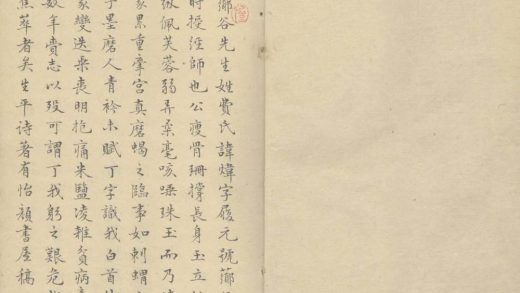 薌谷先生姓費氏諱煒字履元號薌
時授經師也公瘦骨珊撐長身玉立
佩芙蓉弱弄柔毫咳唾珠玉而乃
家累重摩宮真磨蝎之臨事如刺蝟
子墨磨人青衿未賦丁字識我白首
家變迭乘喪明抱痛米鹽凌雜貧病
數年賫志以歿可謂丁我躬之艱危
焦萃者矣生平詩著有怡顏書屋稿